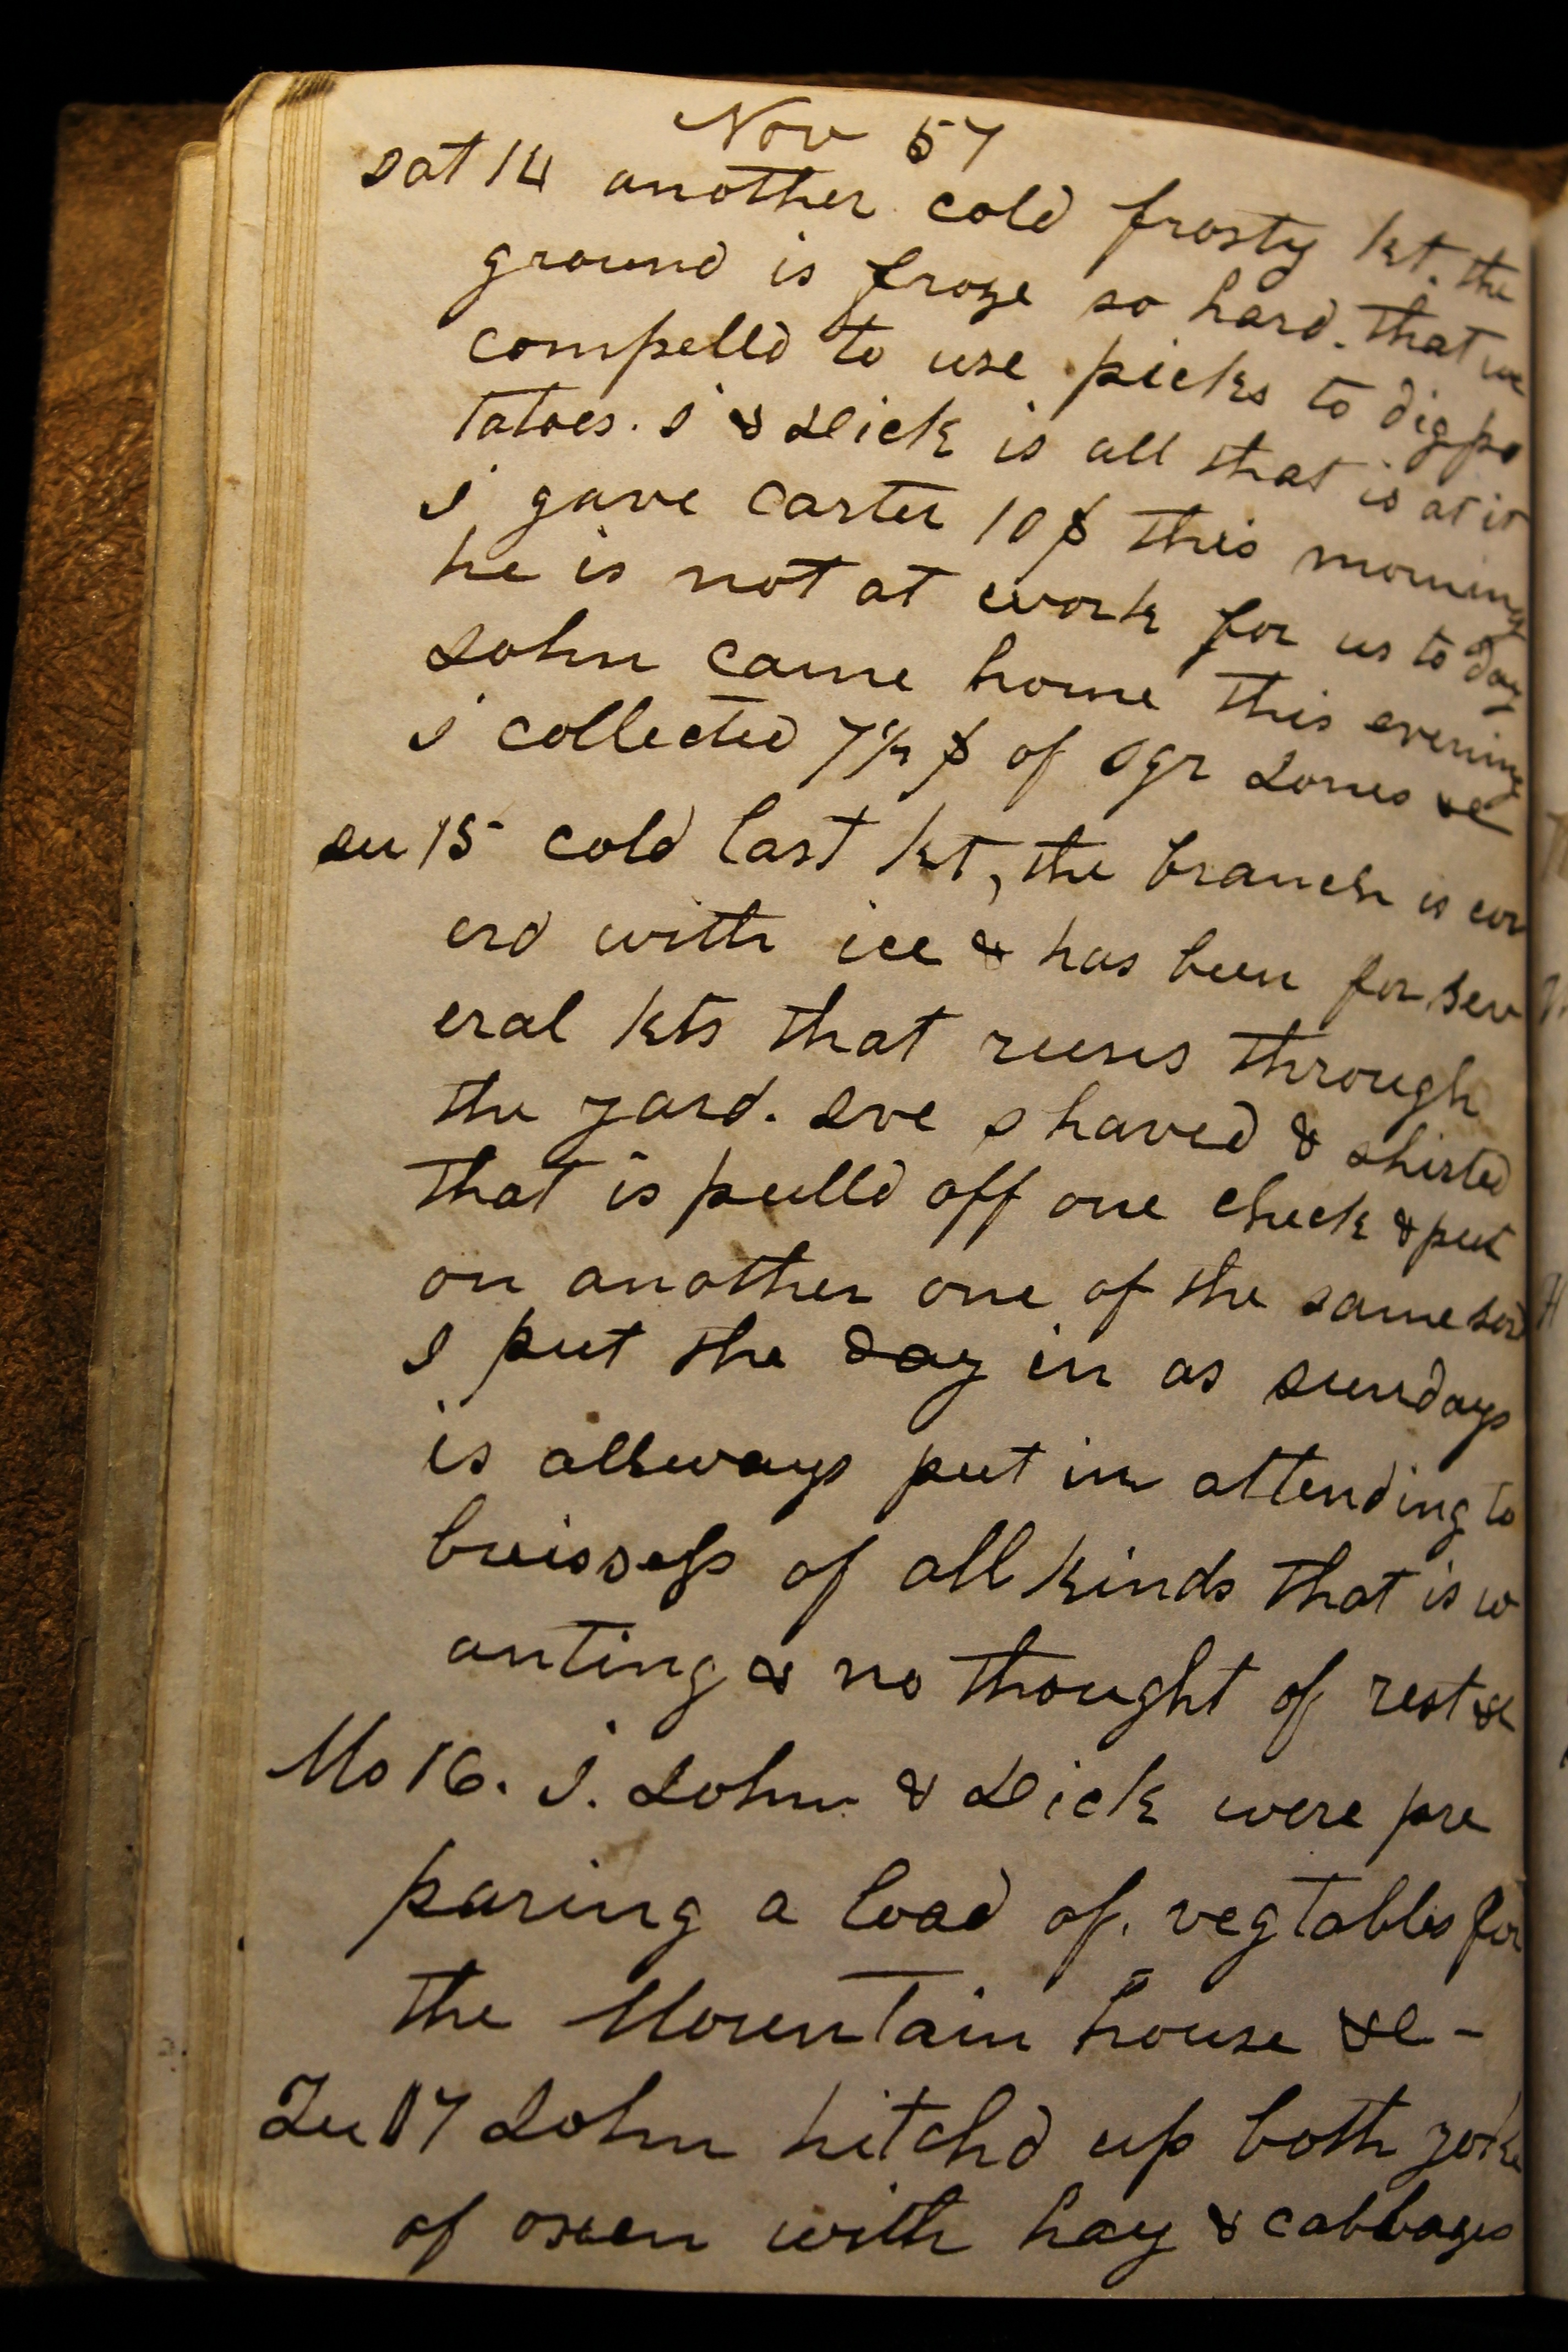 Nov 57
sat 14 another cold frosty kt. the
ground is froze so hard. that we
compelld to use picks to dig po
tatoes. I & Dick is all that is at it
I gave Carter 10 $ this morning
he is not at work for us to day
John came home this evening
I collected 7½ $ of Jones &c
su 15 cold last kt, the branch is cov
erd with ice & has been for sev
eral kts that runs through
the yard. Ive shaved & shirted
that is pulld off one check & put
on another one of the same sort
I put the day in as sundays
is allways put in attending to
of all kinds that is w
anting & no thought of rest &c
Mo 16. I. John & Dick were pre
paring a load of. vegtables for
the Mountain house &c -
Tu 17 John hitchd up both yoke
of oxen with hay & cabbages